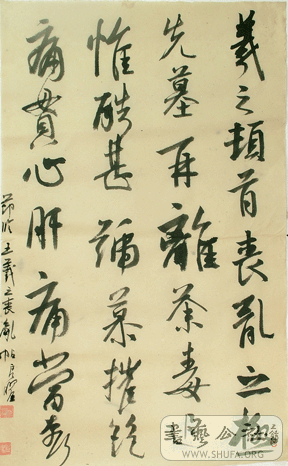 羲之頓首喪亂之極
先墓再離荼毒追
惟酷甚號慕摧絕
痛貫心肝痛當奈
節臨王羲之喪亂帖
書藝公社
WWW.SHUFA.ORG